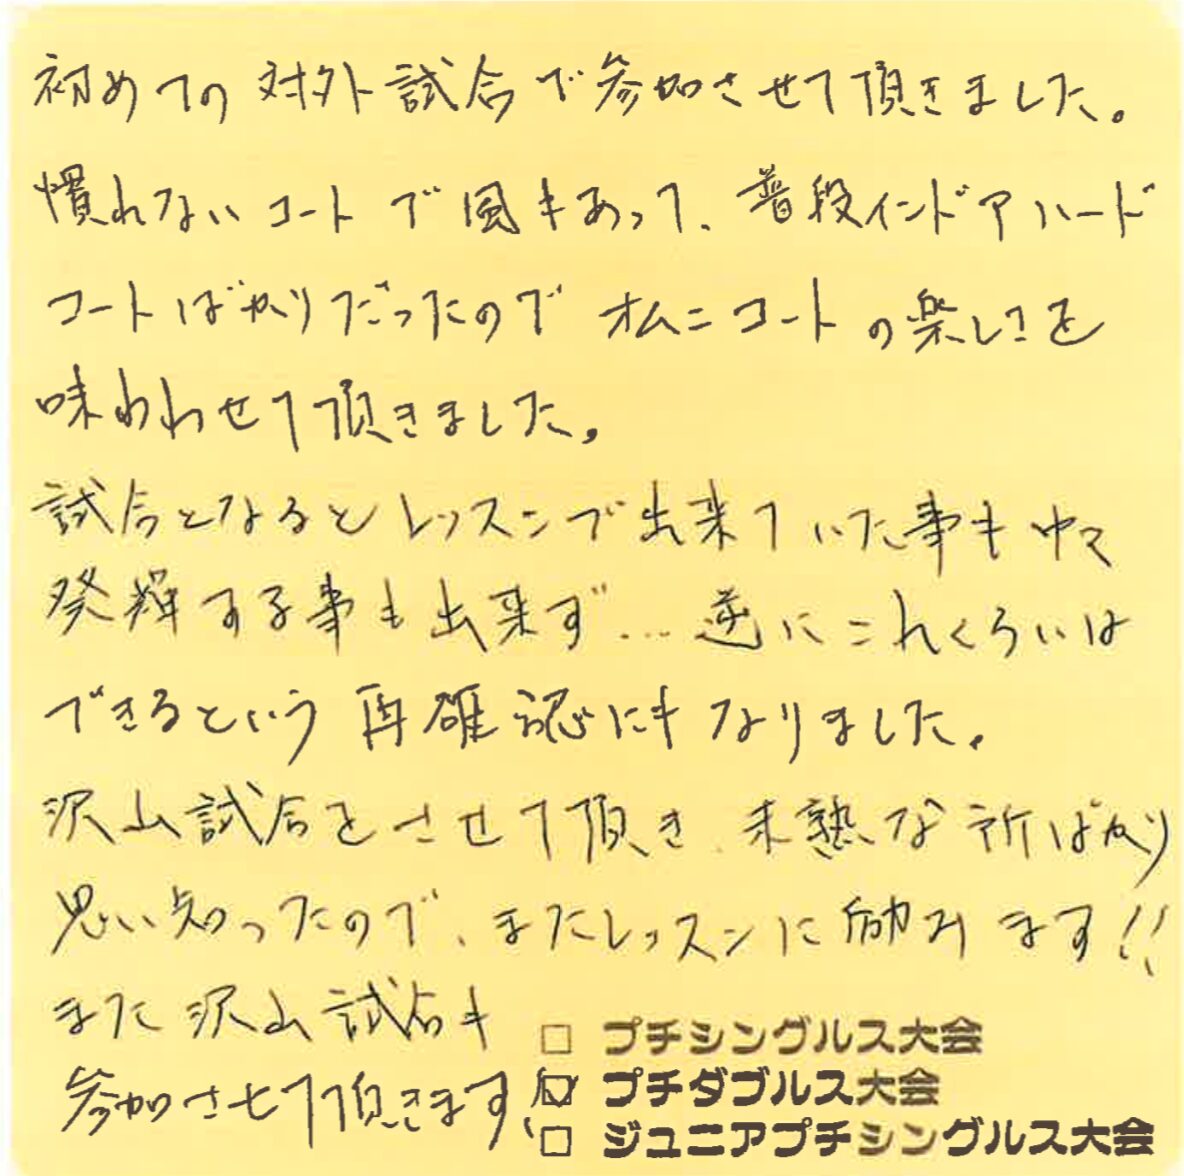 初めての対外試合で参加させて頂きました。
慣れないコートで風もあって、普段インドアハード
コートばかりだったのでオムニコートの楽しさを
味わわせて頂きました。
試合となるとレッスンで出来ていた事も中々
発揮する事も出来ず…逆にこれくらいは
できるという再確認にもなりました。
沢山試合をさせて頂き、未熟な所ばかり
思い知ったので、またレッスンに励みます!!
また沢山試合も
参加させて頂きます!
□ プチシングルス大会
☑ プチダブルス大会
□ ジュニアプチシングルス大会